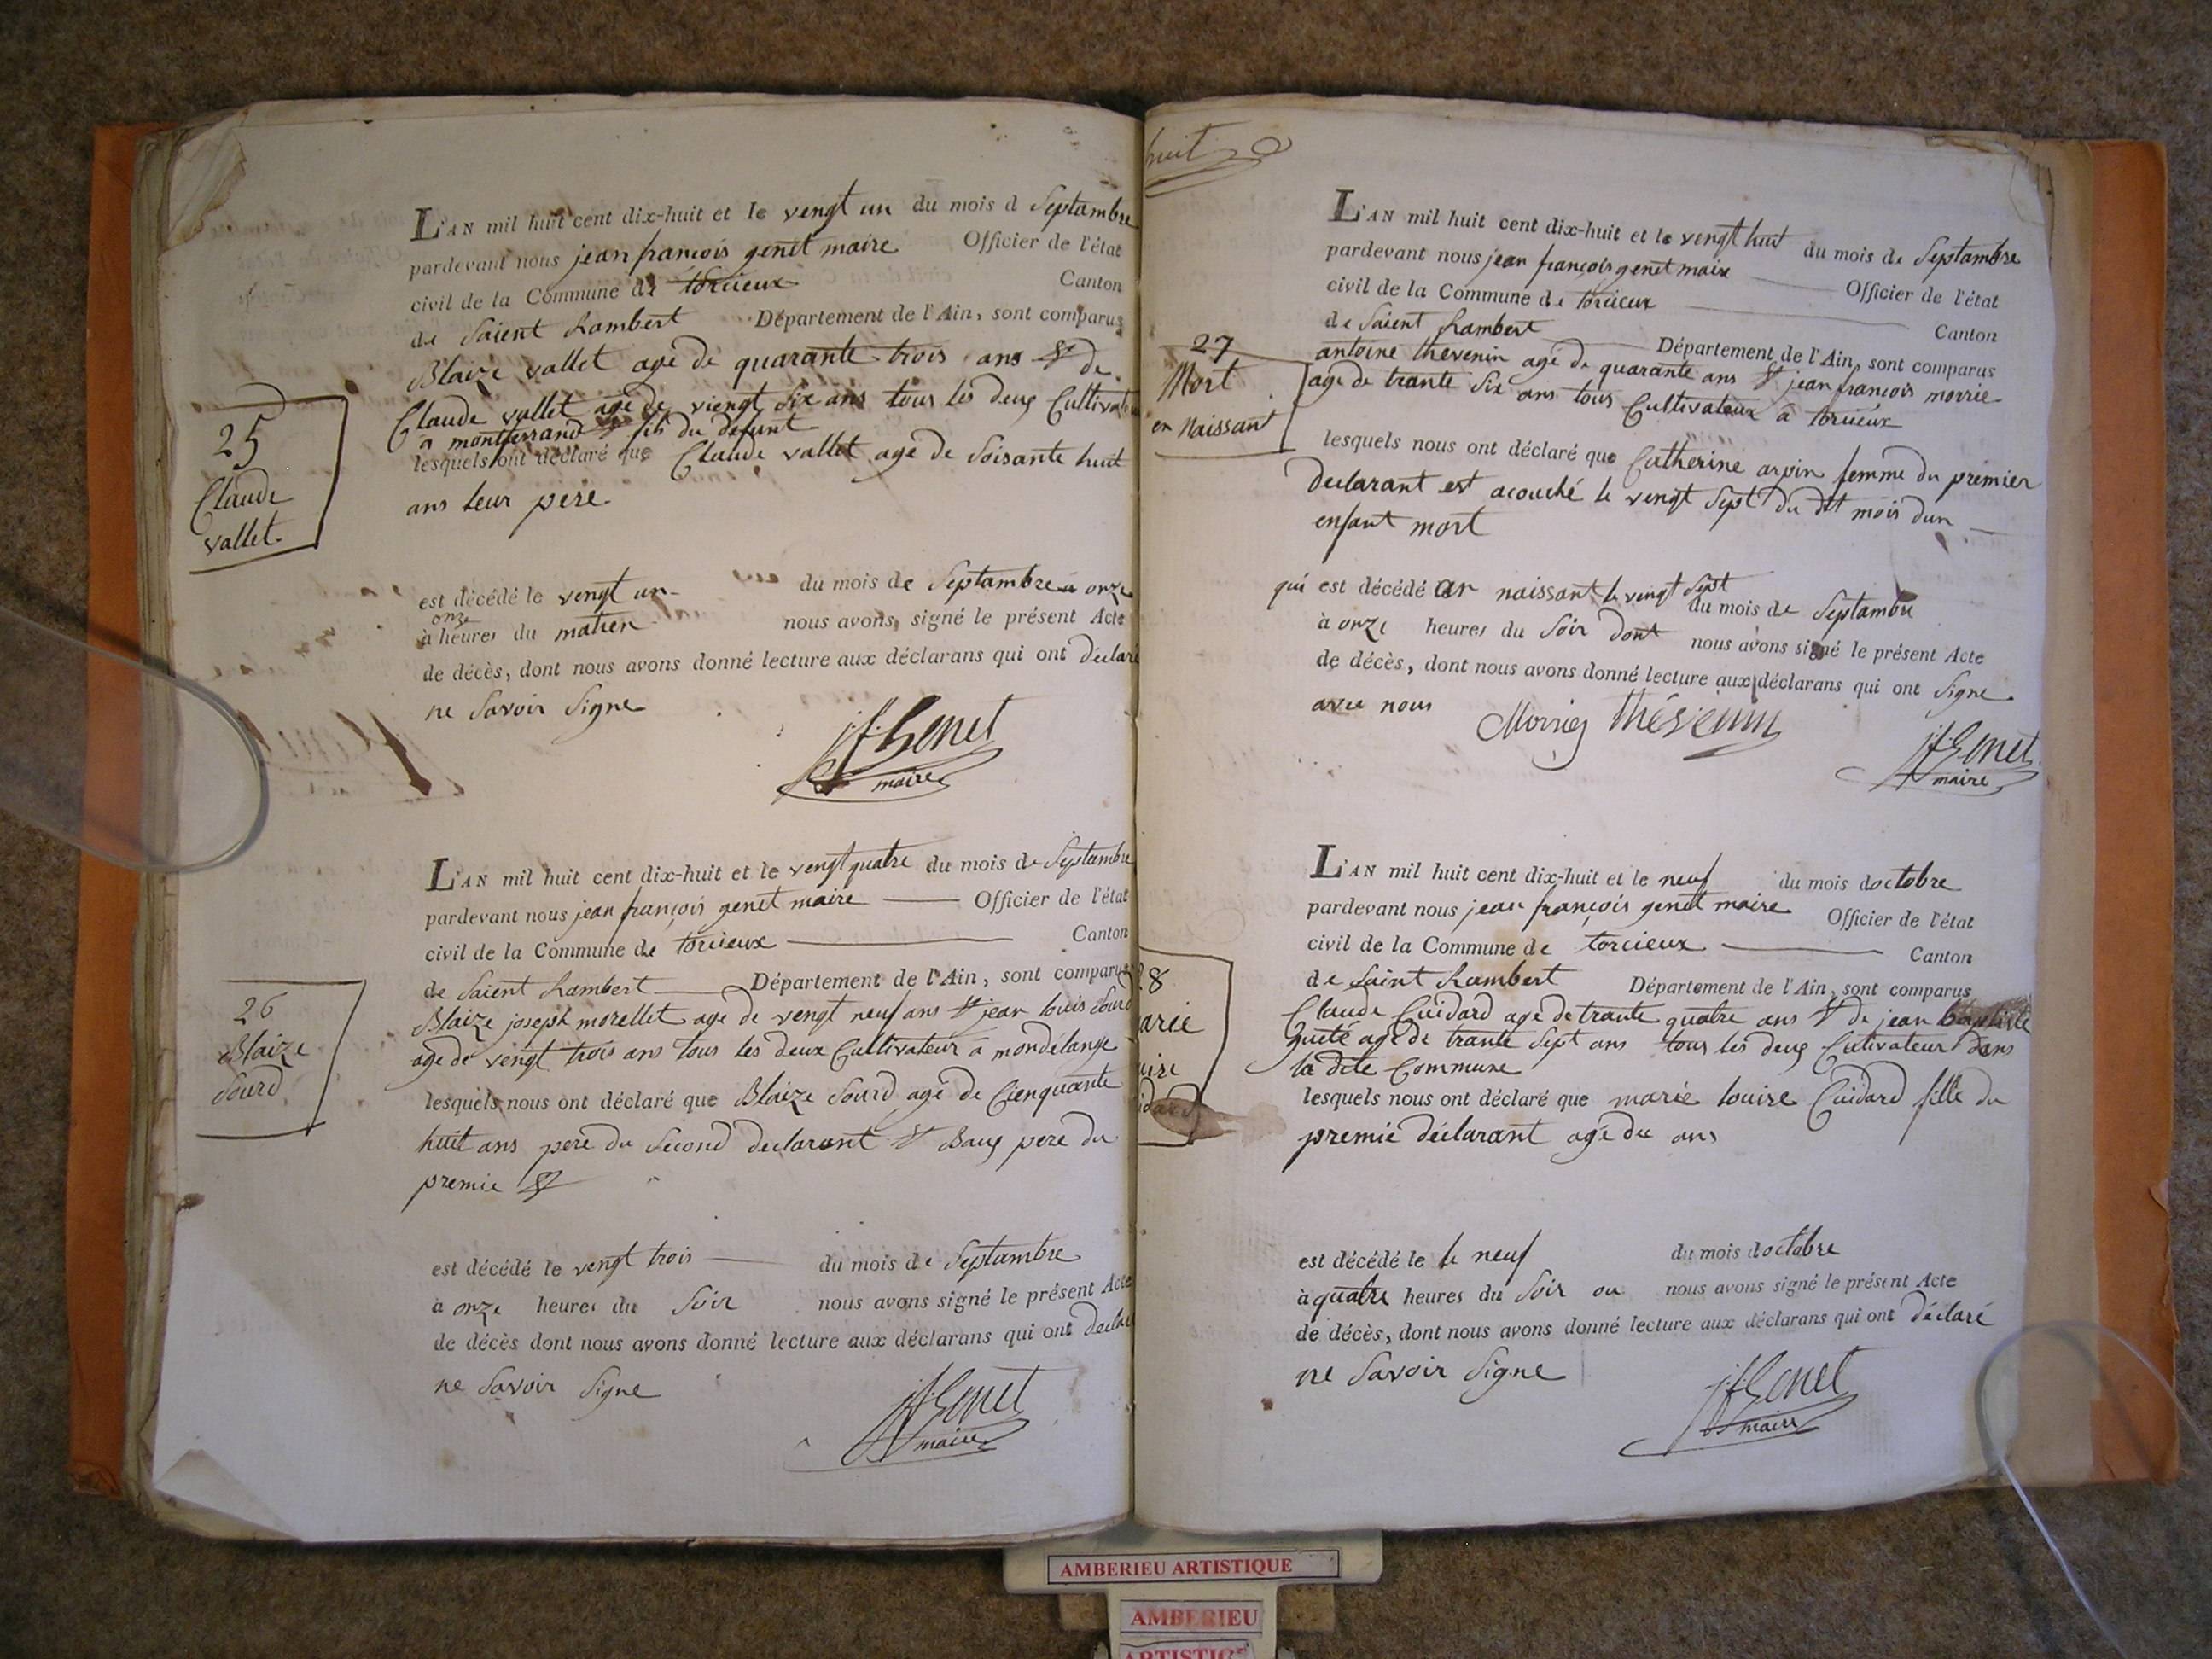 L'AN mil huit cent dix-huit et le vengt un du mois d Septambre
pardevant nous jean françois genet maire Officier de l'état
civil de la Commune de torcieux Canton
de Saient Rambert Département de l'Ain, sont comparus
Blaize vallet age de quarante trois ans & de
Claude vallet age de viengt Six ans tous les deux Cultivat
a montferrand & fils du defunt
lesquels ont déclaré que Claude vallet age de Soisante huit
ans leur pere
25
Claude
vallet
est décédé le vengt un du mois de Septambre a onze
onze
à heures du matien nous avons signé le présent Acte
de décès, dont nous avons donné lecture aux déclarans qui ont déclaré
ne Savoir Signe
jf Genet
maire
L'AN mil huit cent dix-huit et le vengt quatre du mois de Septambre
pardevant nous jean françois genet maire Officier de l'état
civil de la Commune de torcieux Canton
de Saient Rambert Département de l'Ain, sont comparus
Blaize joseph morellet age de vengt neuf ans & jean louis Sourd
age de vengt trois ans tous les deux Cultivateur a mondelange
26
Blaize
Sourd
lesquels nous ont déclaré que Blaize Sourd agé de Cienquante
huit ans pere du Second declarant & Baux pere du
premie &
est décédé le vengt trois du mois de Septambre
à onze heures du Soir nous avons signé le présent Acte
de décès dont nous avons donné lecture aux déclarans qui ont declaré
ne Savoir Signe
jf Genet
maire
huit
L'AN mil huit cent dix-huit et le vengt huit du mois de Septambre
pardevant nous jean françois genet maire Officier de l'état
civil de la Commune de torcieux Canton
de Saient Rambert Département de l'Ain, sont comparus
antoine thevenin age de quarante ans & jean françois morrie
age de trante Six ans tous Cultivateux a torcieux
27
Mort
en Naissant
lesquels nous ont déclaré que Catherine arpin femme du premier
declarant est acouché le vengt Sept du dit mois dun
enfant mort
qui est décédé an naissant le vengt Sept du mois de Septambre
à onze heures du Soir dont nous avons signé le présent Acte
de décès, dont nous avons donné lecture aux déclarans qui ont Signe
avec nous
Morriez thévenin
jf Genet
maire
L'AN mil huit cent dix-huit et le neuf du mois doctobre
pardevant nous jean françois genet maire Officier de l'état
civil de la Commune de torcieux Canton
de Saint Rambert Département de l'Ain, sont comparus
Claude Cuidard age de trante quatre ans & de jean baptiste
age de trante Sept ans tous les deux Cutivateur dans
la dite Commune
28
arie
uire
idard
lesquels nous ont déclaré que marie louire Cuidard fille du
premie déclarant agé du ans
est décédé le le neuf du mois doctobre
à quatre heures du Soir ou nous avons signé le présent Acte
de décès, dont nous avons donné lecture aux déclarans qui ont déclaré
ne Savoir Signe
jf Genet
maire
AMBERIEU ARTISTIQUE
AMBERIEU
ARTISTIQ